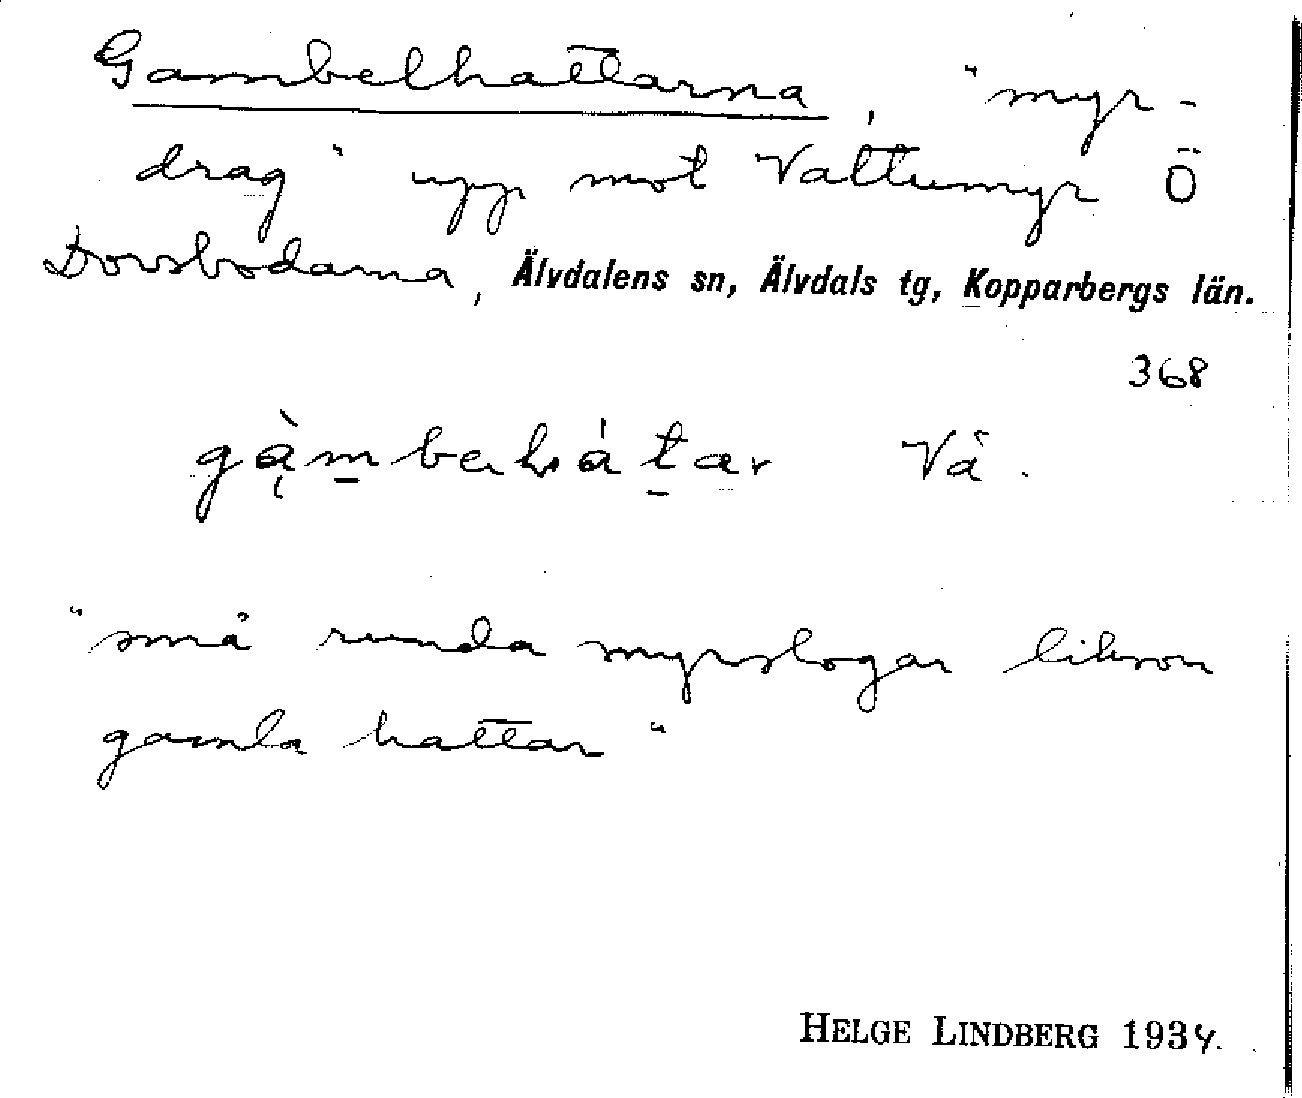 Gambelhattarna, "myr-
drag" upp mot Vattumyr Ö
Dovsbodarna, Älvdalens sn, Älvdals tg, Kopparbergs län.
368
Vå.
"små runda myrslogar liksom
gamla hattar"
HELGE LINDBERG 1934.